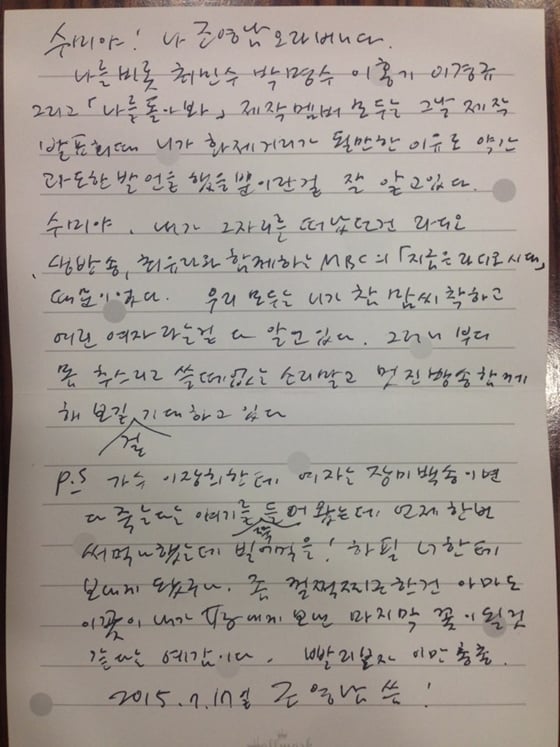 수미야! 나 조영남 오라버니다.
나를 비롯 최민수 박명수 이홍기 이경규
그리고 「나를 돌아봐」 제작멤버 모두는 그날 제작
발표회때 니가 화제거리가 될만한 이유로 약간
과도한 발언을 했을뿐이란걸 잘 알고있다.
수미야. 내가 그자리를 떠났던건 라디오
생방송, 최유라와 함께하는 MBC의 「지금은 라디오시대」
때문이었다. 우리 모두는 니가 참 맘씨 착하고
여린 여자라는걸 다 알고있다. 그러니 부디
몸 추스리고 쓸데없는 소리말고 멋진방송 함께
해 보길 기대하고 있다
걸
P.S 가수 이장희한테 여자는 장미백송이면
다 죽는다는 얘기를 들어 왔는데 언제 한번
써먹나 했는데 빌어먹을! 하필 너한테
보내게 됐구나. 좀 껄쩍찌근한건 아마도
이꽃이 내가 여쟈에게 보낸 마지막 꽃이 될것
같다는 예감이다. 빨리보자 이만 총총.
2015.7.17일 조영남 씀!